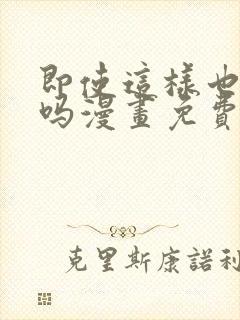 即使這樣也
吗漫畫免費
克里斯康諾利